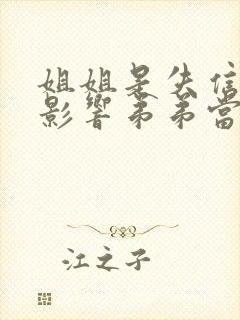 姐姐是失信
影響弟弟當
江之子